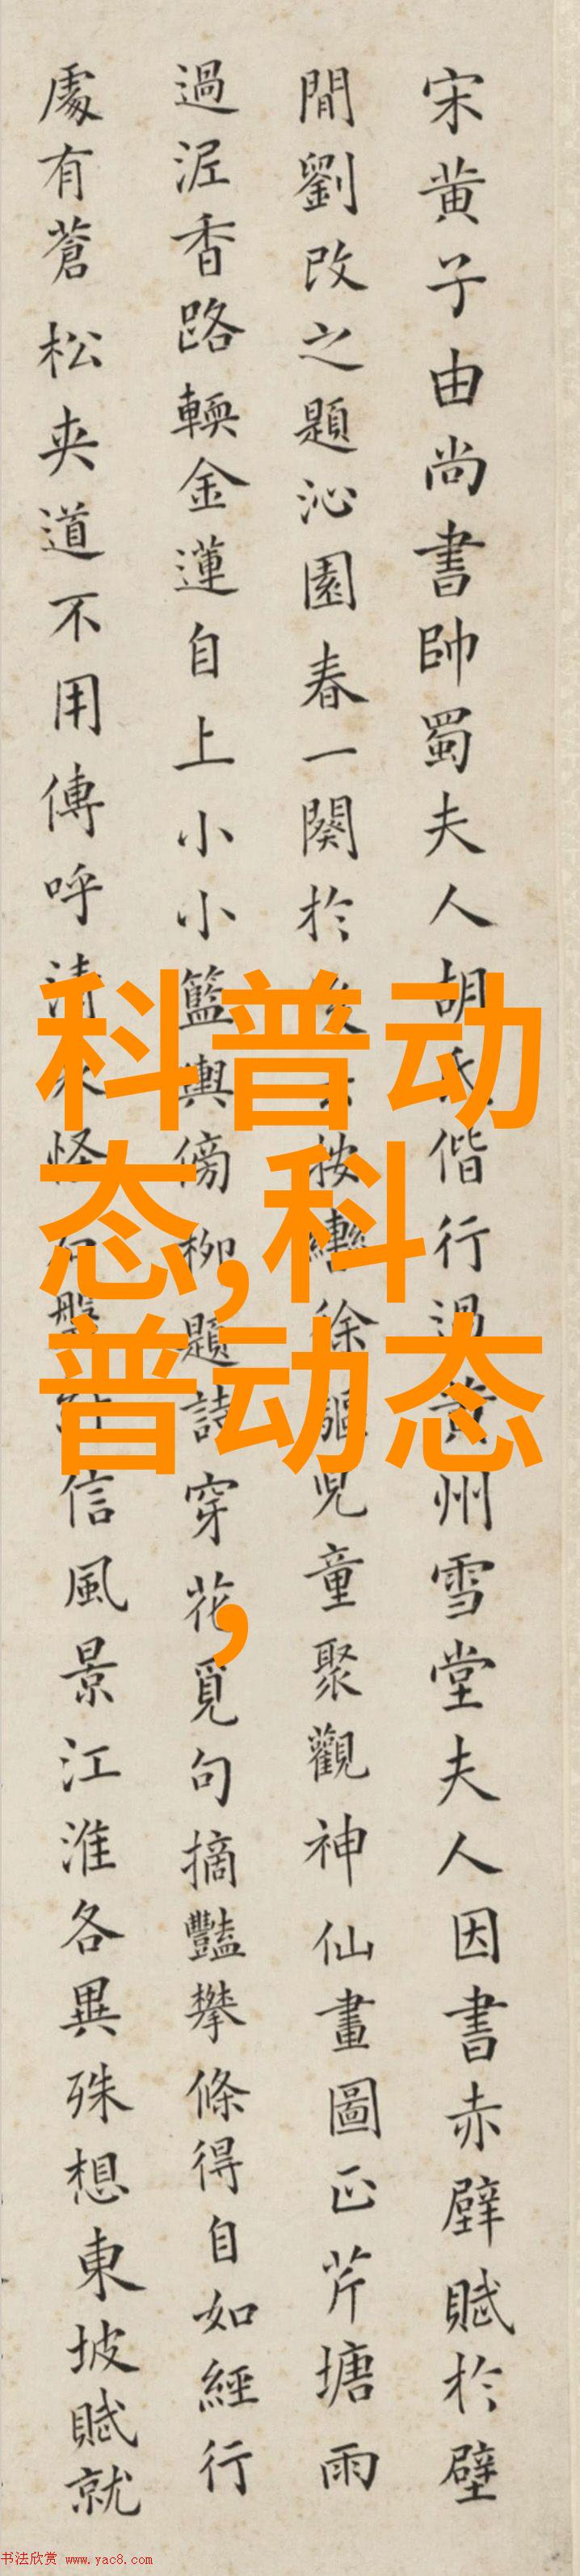 宋黄子由尚書帥蜀夫人胡氏偕行過黄州雪堂夫人因書赤壁賦於壁
間劉改之題沁園春一闋於後云按轡徐驅兒童聚觀神仙畫圖正芹塘雨
過泥香路輭金蓮自上小小籃輿傍柳題詩穿花覓句摘豔攀條得自如經行
處有蒼松夾道不用傳呼清泉怪石盤紆信風景江淮各異殊想東坡賦就
科普动
态,科
普动态
,
书法欣赏 www.yac8.com